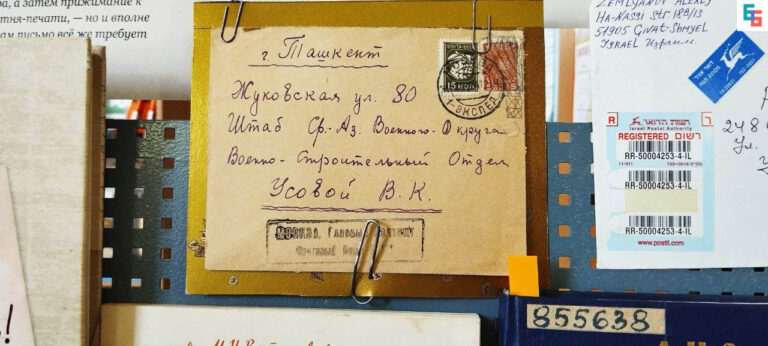 а затем прижимание к
тня-печати, — но и вполне
ам письмо всё же требует
г. Ташкент
15 КОП
Жуковская ул. 80
Штаб Ср.-Аз. Военного Округа
Военно-Строительный Отдел
Усовой В. К.
МОСКВА,
ZEMLYANOV ALEXEJ
HA-NASSI Str 189/13
51905 GIVAT-SHMUEL
ISRAEL Израиль
PAR AVION
R
רשות הדואר
Israel Postal Authority
REGISTERED רשום
RR-50004253-4-IL
RR-50004253-4-IL
RR-50004253-4-IL
www.postil.com
ул.
855638